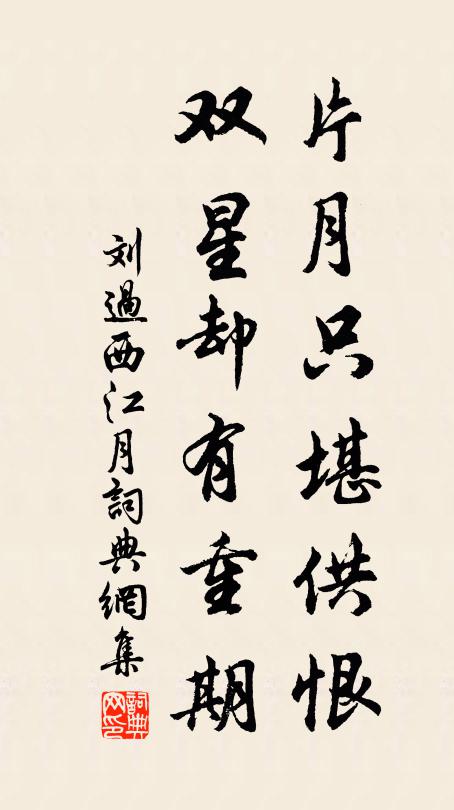 片月只堪供恨
双星却有重期
刘過西江月詞典網集
詞典网印